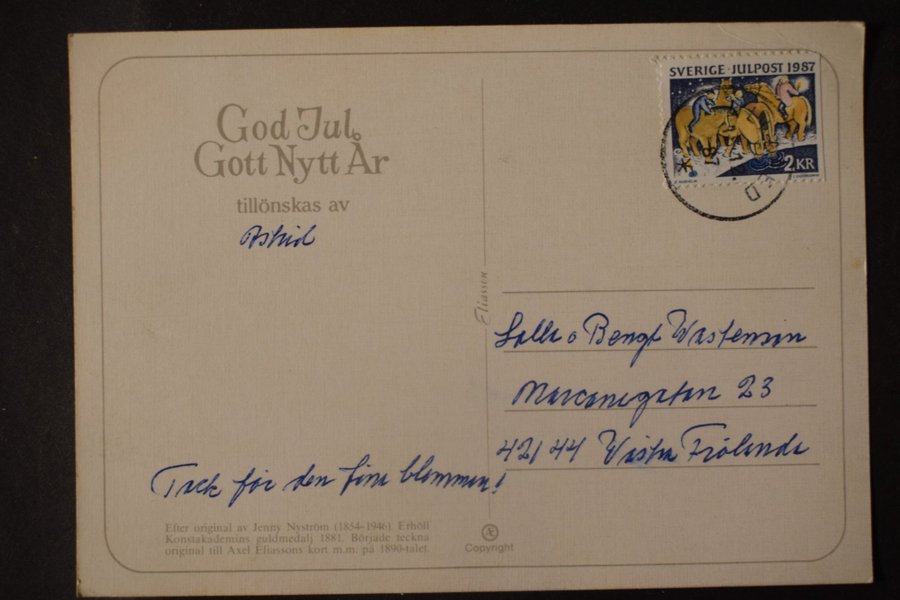 SVERIGE · JULPOST 1987
2 KR
87
God Jul
Gott Nytt År
tillönskas av
Astrid
Eliasson
Lalla o Bengt Wastenson
Marconigatan 23
421 44 Västra Frölunda
Tack för den fina blomman!
Efter original av Jenny Nyström (1854–1946). Erhöll
Konstakademins guldmedalj 1881. Började teckna
original till Axel Eliassons kort m.m. på 1890-talet.
Copyright